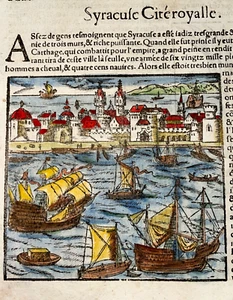 Syracuse Cité royalle.
ASsez de gens tesmoignent que Syracuse a esté iadiz tresgrande &
nie de trois murs, & riche puissante. Quand elle fut prise il y eut
Carthage, qui combattit pour l'empire, a grand peine en rendit
tant tira de ceste ville là seulle, vne armée de six vingtz mille pie
hommes a cheual, & quatre cens nauires. Alors elle estoit tresbien mun